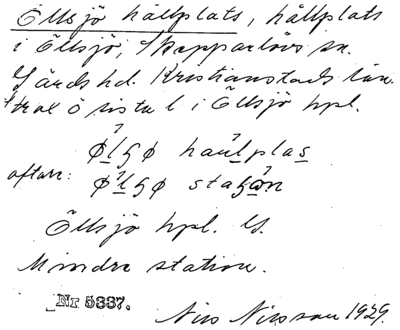 Öllsjö hållplats, hållplats
i Öllsjö, Skepparlövs sn.
Gärds hd. Kristianstads län.
ö sista l i Öllsjö hpl.
ɸlɧɸ haulplas
oftare: ɸlɧɸ staɧɷn
Öllsjö hpl. G.
Mindre station.
Nr 5337.
Nils Nilsson 1929.